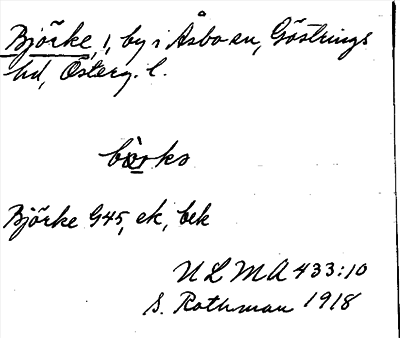 Björke, 1, by i Åsbo sn, Göstrings
hd, Österg. l.
Björke G45, ek, bek
ULMA 433:10
S. Rothman 1918